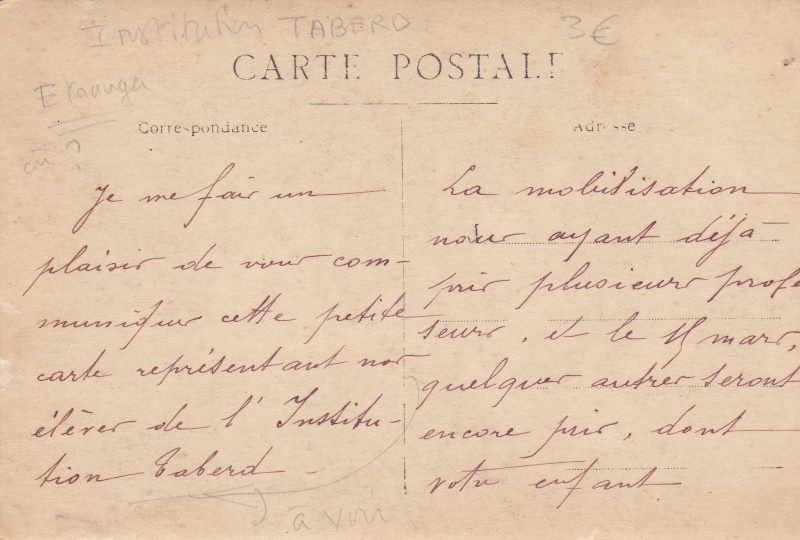 Institution TABERD
3€
CARTE POSTALE
où ?
Correspondance
Adresse
Je me fais un
plaisir de vous com-
muniquer cette petite
carte représentant nos
élèves de l' Institu-
tion Taberd -
à voir
La mobilisation
nous ayant déjà
pris plusieurs profes
seurs, et le 15 mars,
quelques autres seront
encore pris, dont
votre enfant